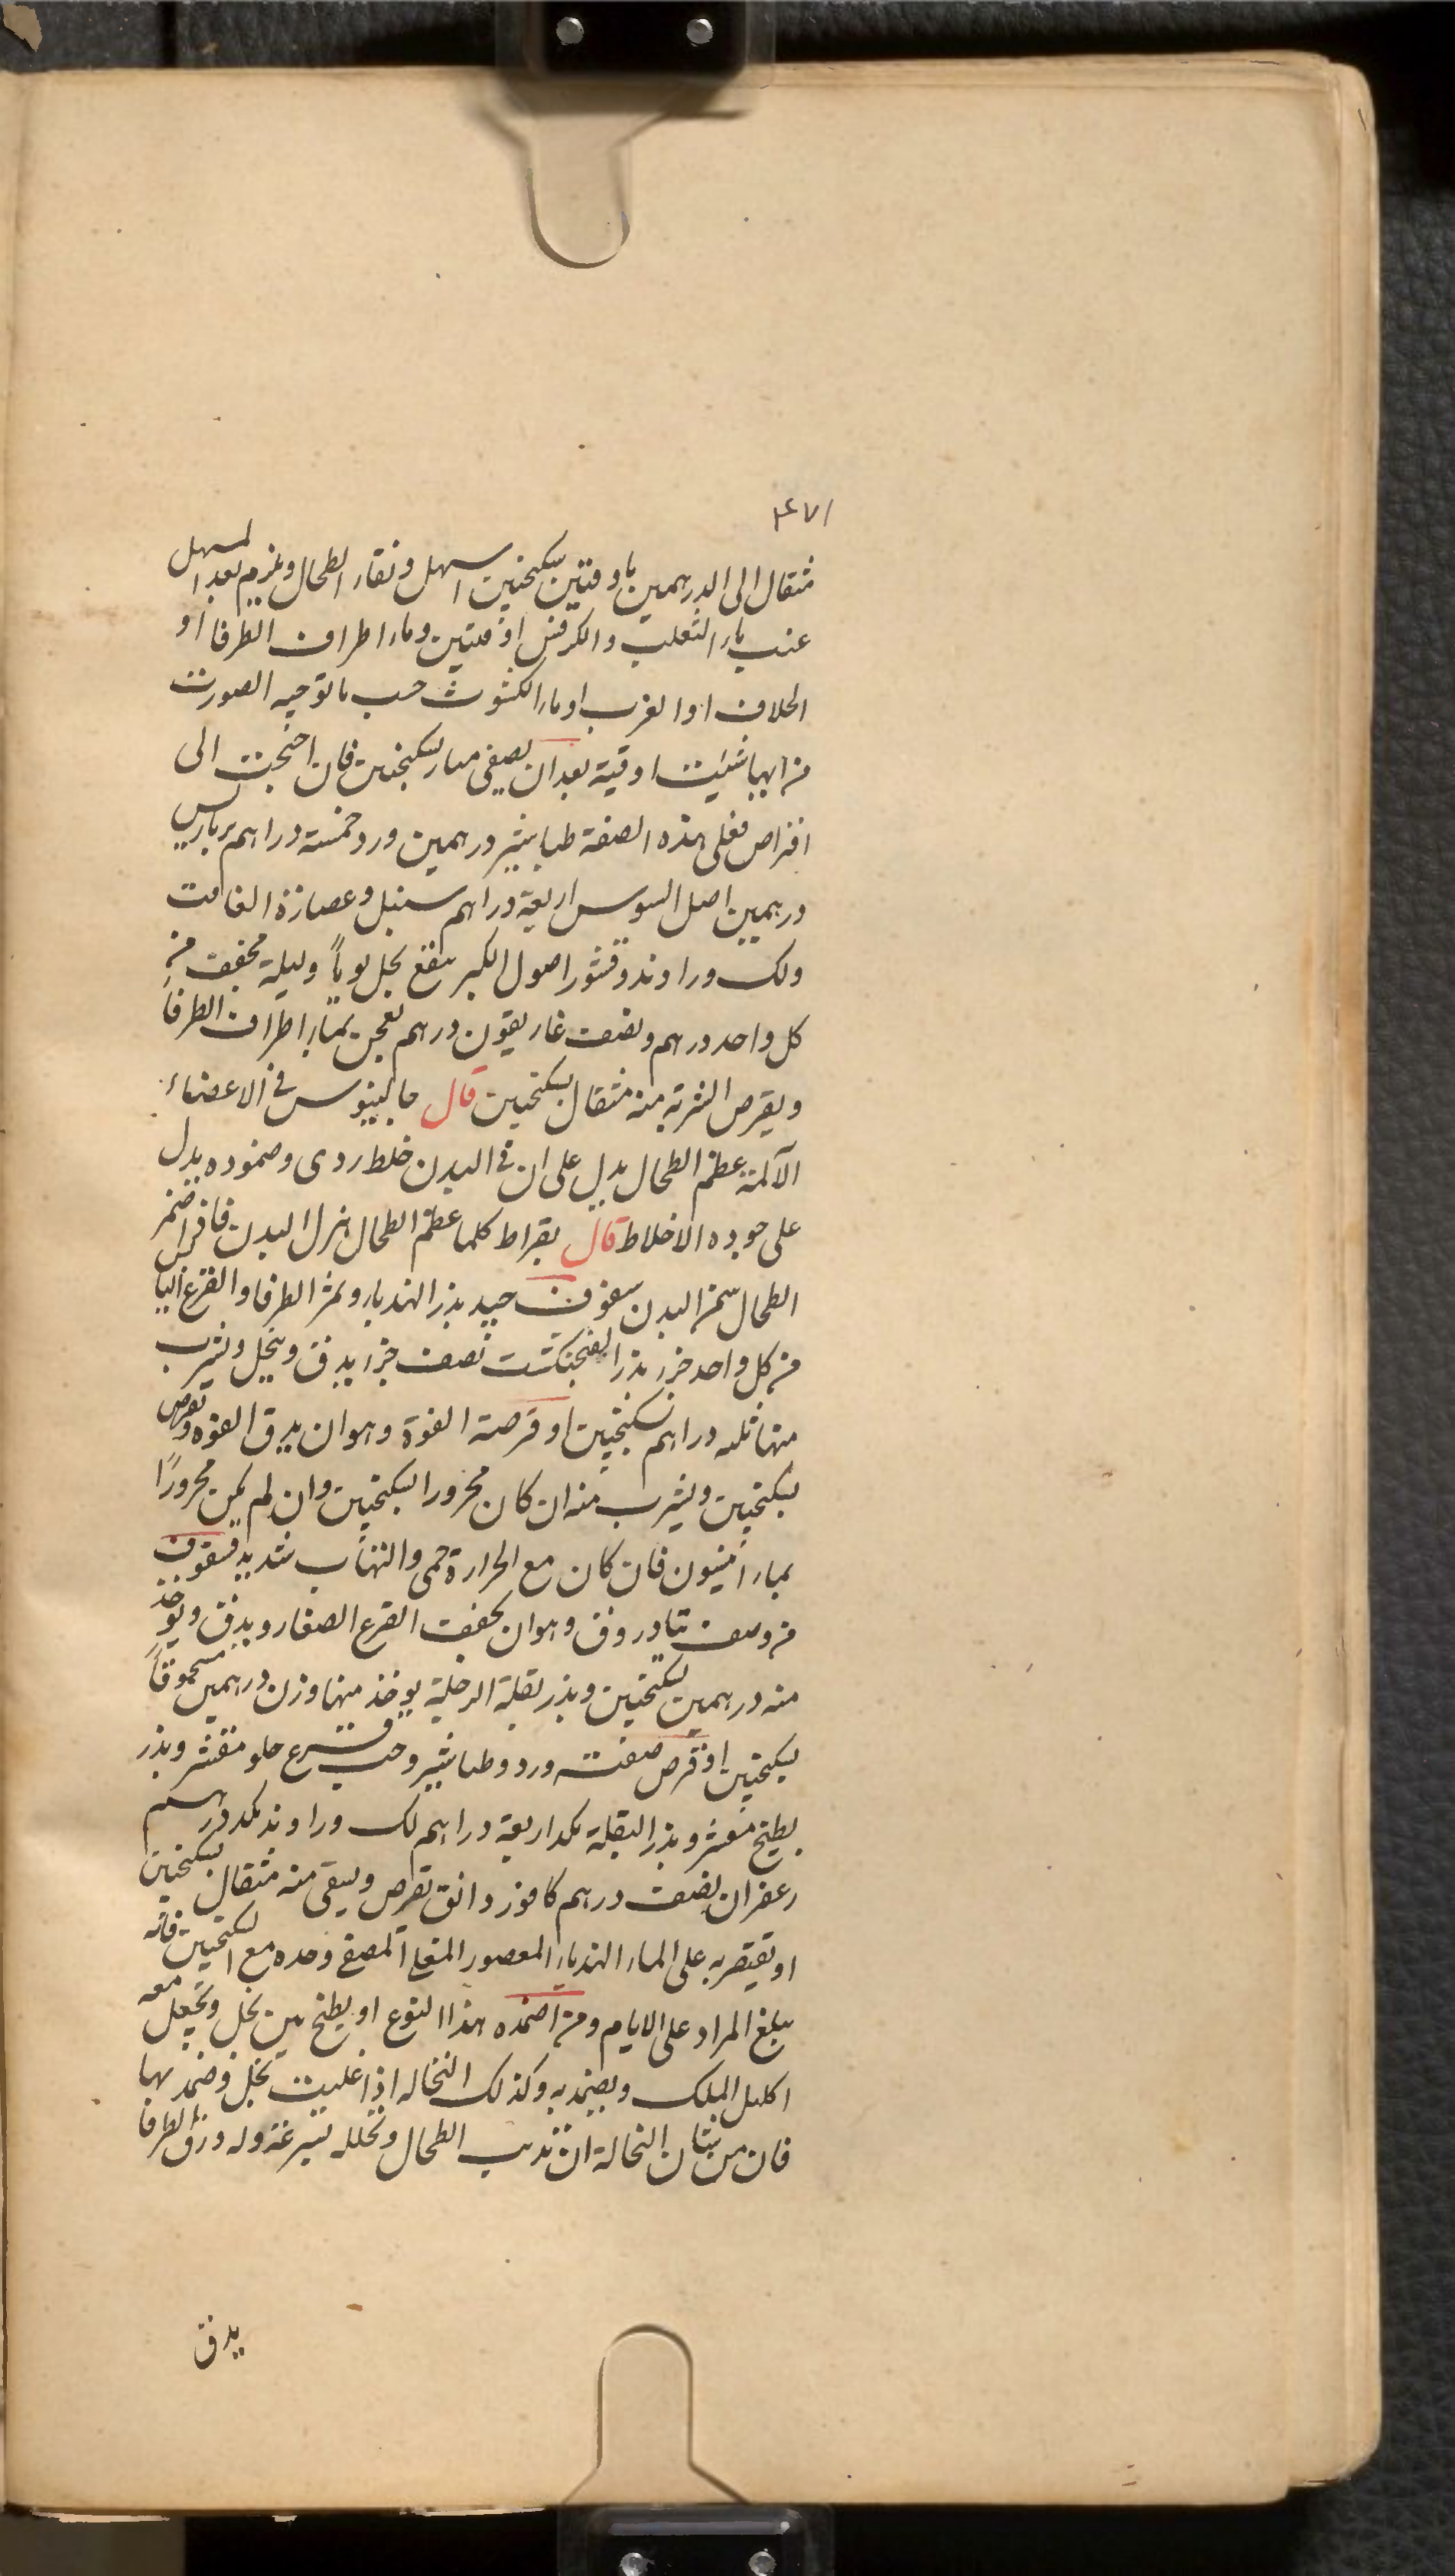 ٤٧١
مثقال الى الدرهمين باوقتين سكنجبين اسهل ونقاء الطحال ويلزم بعد المسهل
عنب ماء الثعلب والكرفس اوقيتين وماء اطراف الطرفا او
الخلاف او الغرب او ماء الكشوث حسب ما توجبه الصورت
من ايهما شئيت اوقية بعد ان يصفى مسار سكنجبين فان احتجت الى
اقراص فعلى هذه الصفة طباشير درهمين ورد خمسة دراهم برباريس
درهمين اصل السوس اربعة دراهم سنبل وعصارة الغافت
ولك وراوند وقشور اصول الكبر ينقع بخل يوماً وليلة مجفف من
كل واحد درهم ونصف غاريقون درهم يعجن بماء اطراف الطرفا
ويقرص الشربه منه مثقال بسكنجبين قال جالينوس في الاعضاء
الآلمة عظم الطحال يدل على ان في البدن خلط ردى وضموده يدل
على جوده الاخلاط قال بقراط كلما عظم الطحال هزل البدن فاذا ضمر
الطحال سمن البدن سفوف جيد بذر الهندباء وثمر الطرفا والقرع اليا
من كل واحد جزء بذر الفنجنكشت نصف جزء يدق وينخل ويشرب
منها ثلثه دراهم بسكنجبين او قرصة الفوة وهو ان يدق الفوه وتقرص
بسكنجبين ويشرب منه ان كان محرورا بسكنجبين وان لم يكن محرورًا
بماء انيسون فان كان مع الحرارة حمى والتهاب شديد فسفوف
من وصف تيادروق وهو ان يجفف القرع الصغار ويدق ويوخذ
منه درهمين بسكنجبين وبذر بقلة الرجلة يوخذ منها وزن درهمين مسحوقاً
بسكنجبين او قرص صفته ورد وطباشير وحب قرع حلو مقشر وبذر
بطيخ مقشر وبذر البقلة مكد اربعة دراهم لك وراوند مكد درهم
زعفران نصف درهم كافور دانق يقرص ويسقى منه مثقال بسكنجبين
او يقتصر به على الماء الهندباء المعصور المغلى المصفى وحده مع السكنجبين فانه
يبلغ المراد على الايام ومن اضمده هذا النوع او يطبخ تين بخل ويجعل معه
اكليل الملك ويضمد به وكذلك النخاله اذا غليت بخل وضمد بها
فان من شان النخالة ان تذيب الطحال وتحلله بسرعة وله ورق الطرفا
يدق